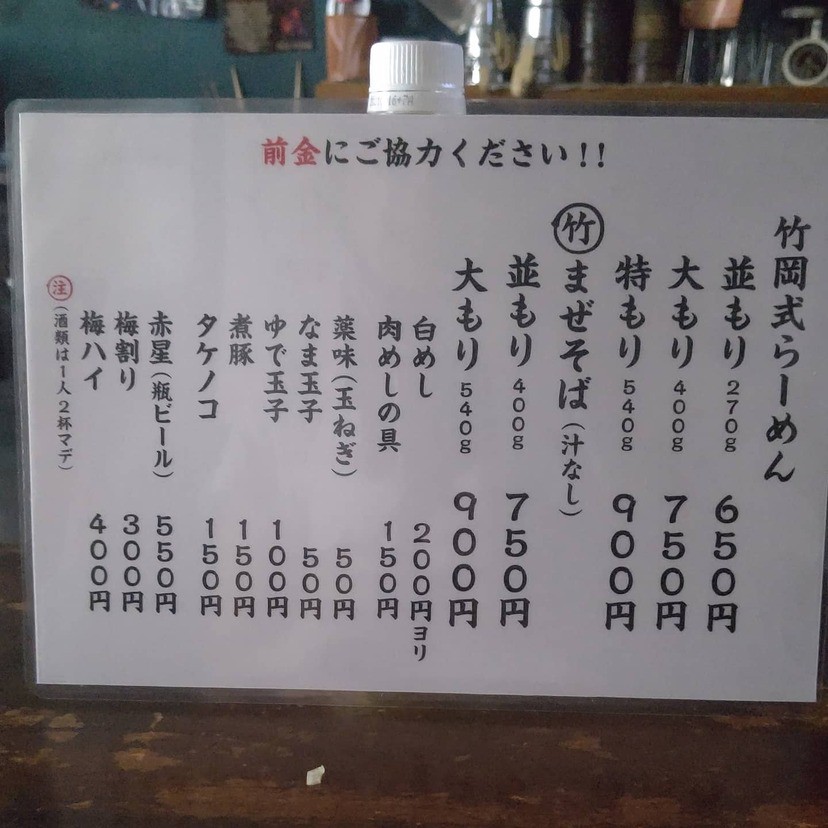 前金にご協力ください!!
竹岡式らーめん
並もり 270g 650円
大もり 400g 750円
特もり 540g 900円
竹まぜそば(汁なし)
並もり 400g 750円
大もり 540g 900円
白めし 200円ヨリ
肉めしの具 150円
薬味(玉ねぎ) 50円
なま玉子 50円
ゆで玉子 100円
煮豚 150円
タケノコ 150円
赤星(瓶ビール) 550円
梅割り 300円
梅ハイ 400円
注(酒類は1人2杯マデ)